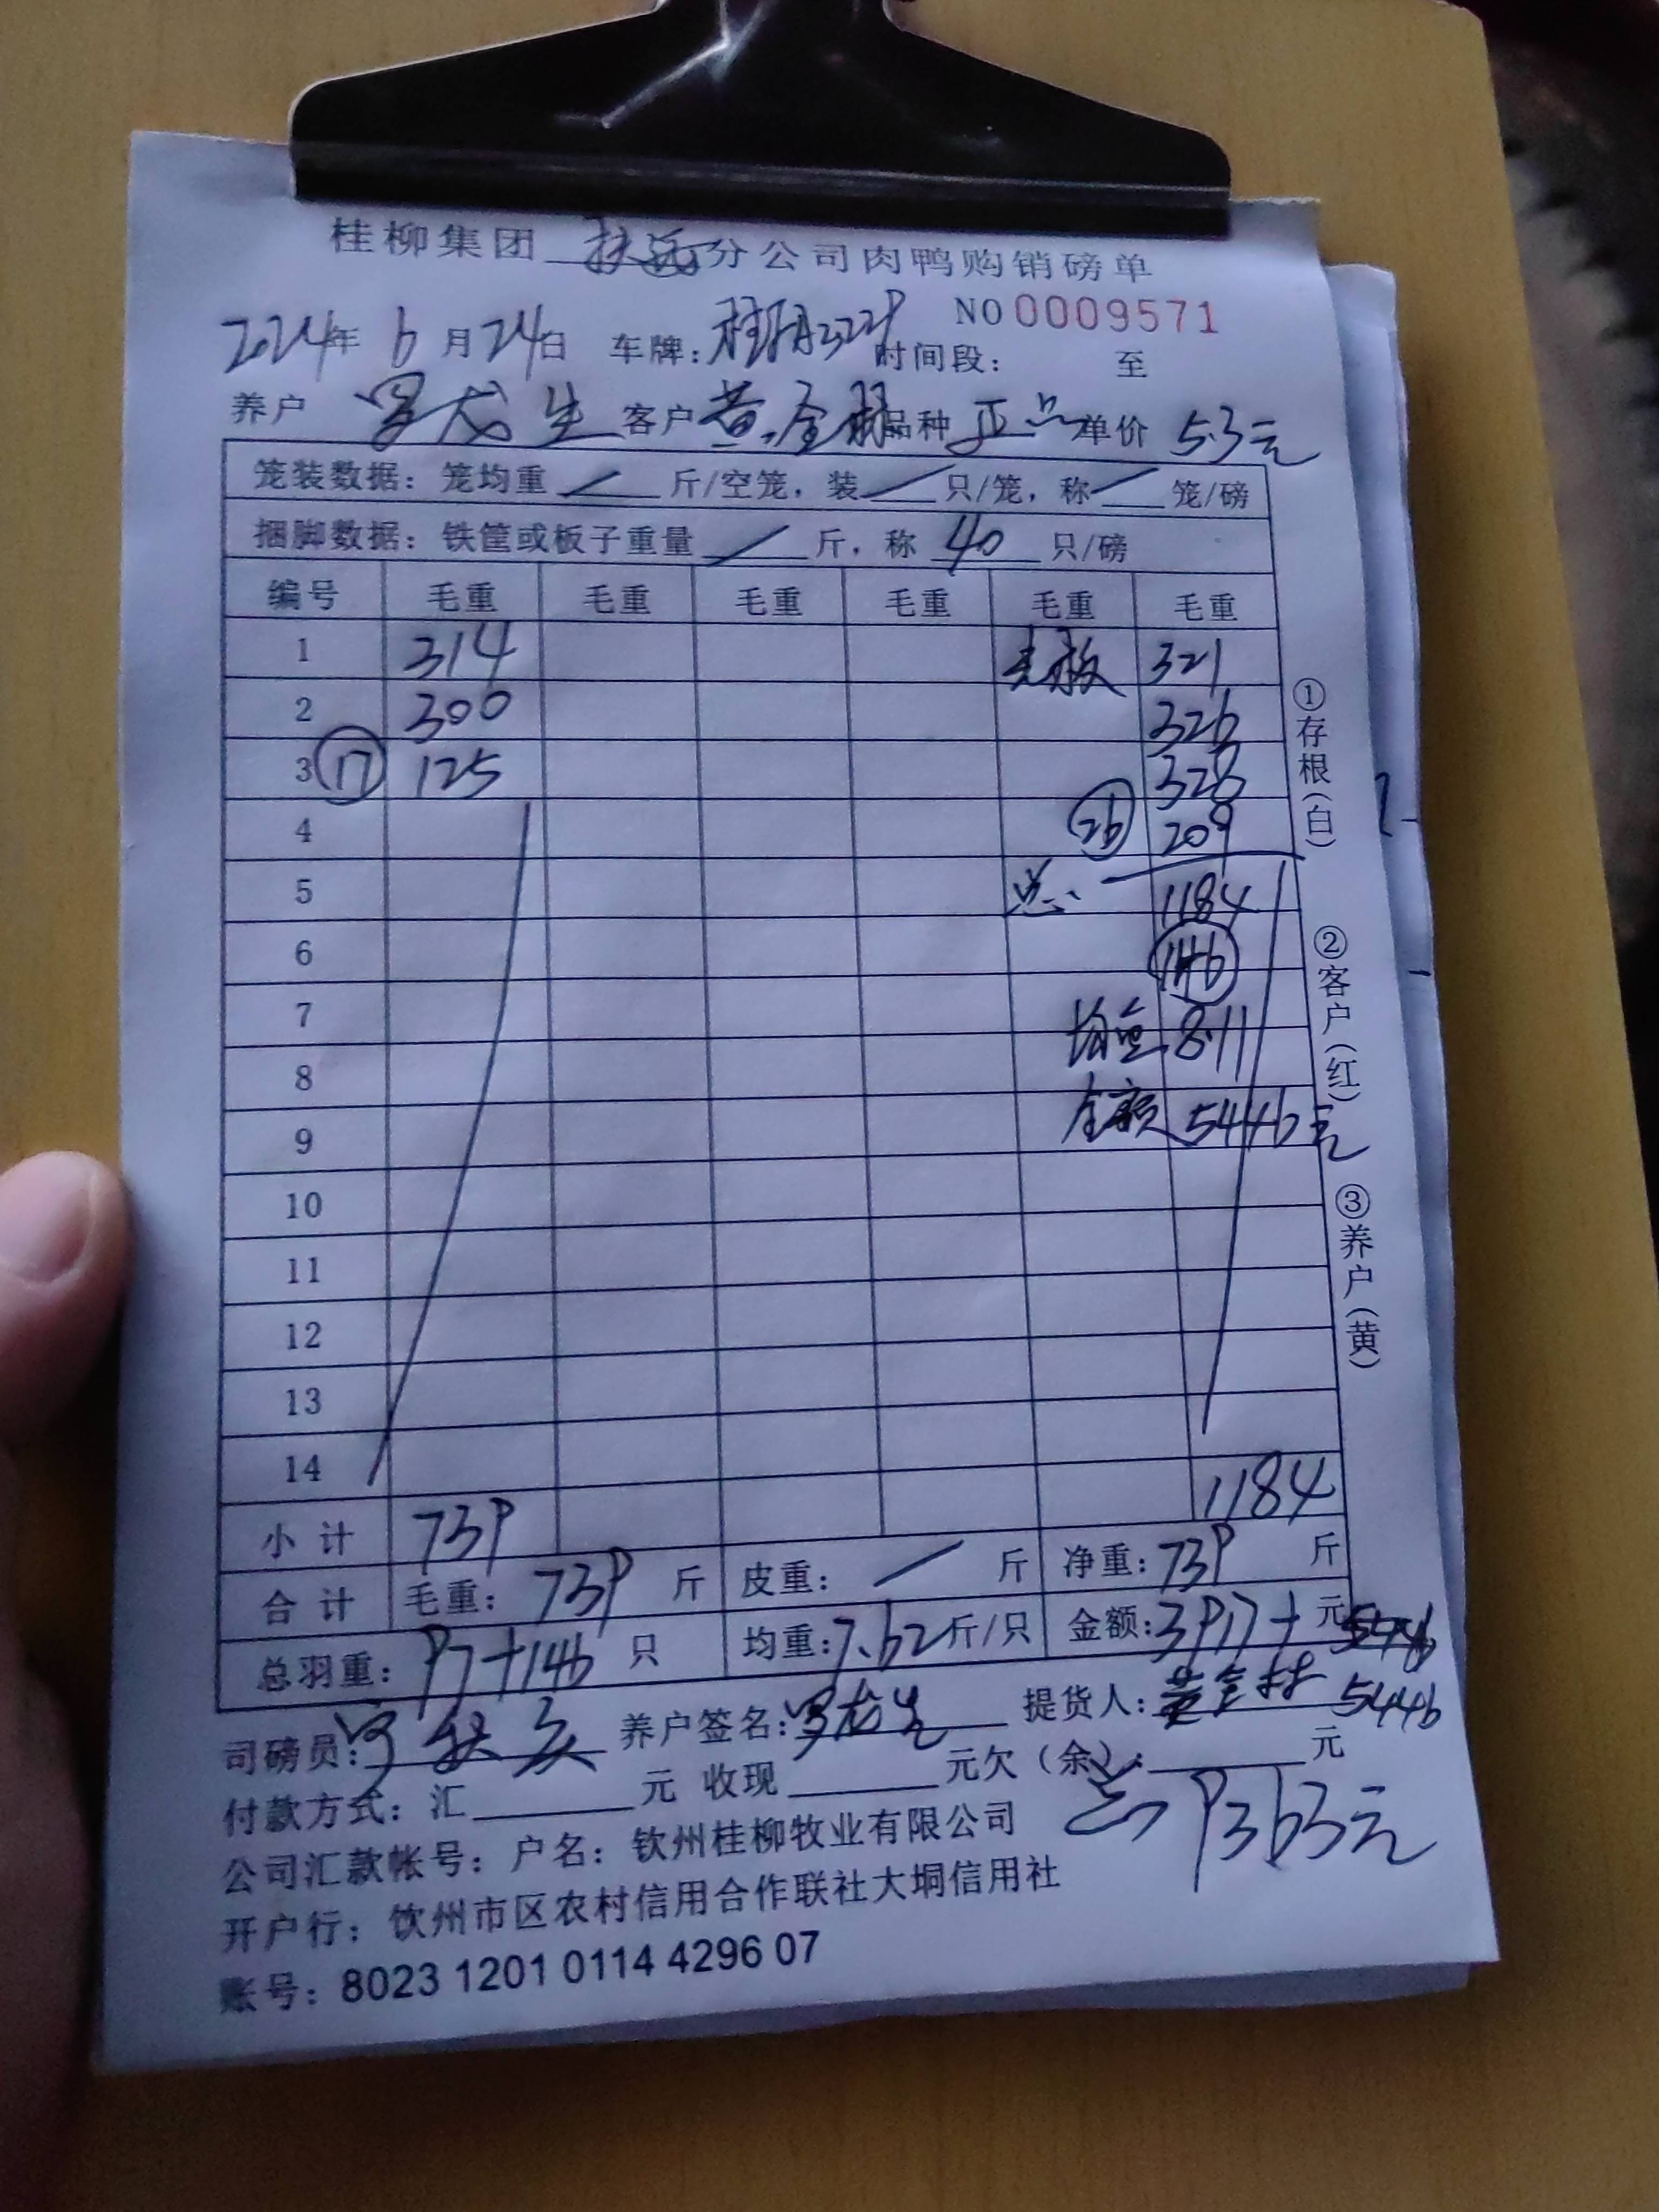 桂柳集团 扶绥 分公司肉鸭购销磅单
NO 0009571
2024年 6 月 24日 车牌: 时间段: 至
养户 罗龙生 客户 黄金林 品种 正品 单价 5.3元
笼装数据: 笼均重 / 斤/空笼, 装 / 只/笼, 称 / 笼/磅
捆脚数据: 铁筐或板子重量 / 斤, 称 40 只/磅
编号 毛重 毛重 毛重 毛重 毛重 毛重
1 314 321
2 300 326
3 ⑰ 125 328
4 ㉖ 209
5 总: 1184
6 146
7 均重 8.11
8
9 金额 5446元
10
11
12
13
14 1184
小计 739
合计 毛重: 739 斤 皮重: / 斤 净重: 739 斤
总羽重: 97+146 只 均重: 7.62 斤/只 金额: 3917+ 元
5446
司磅员: 养户签名: 罗龙生 提货人: 黄金林
付款方式: 汇 元 收现 元欠(余): 元
9363元
公司汇款帐号: 户名: 钦州桂柳牧业有限公司
开户行: 钦州市区农村信用合作联社大垌信用社
账号: 8023 1201 0114 4296 07
①存根(白)
②客户(红)
③养户(黄)